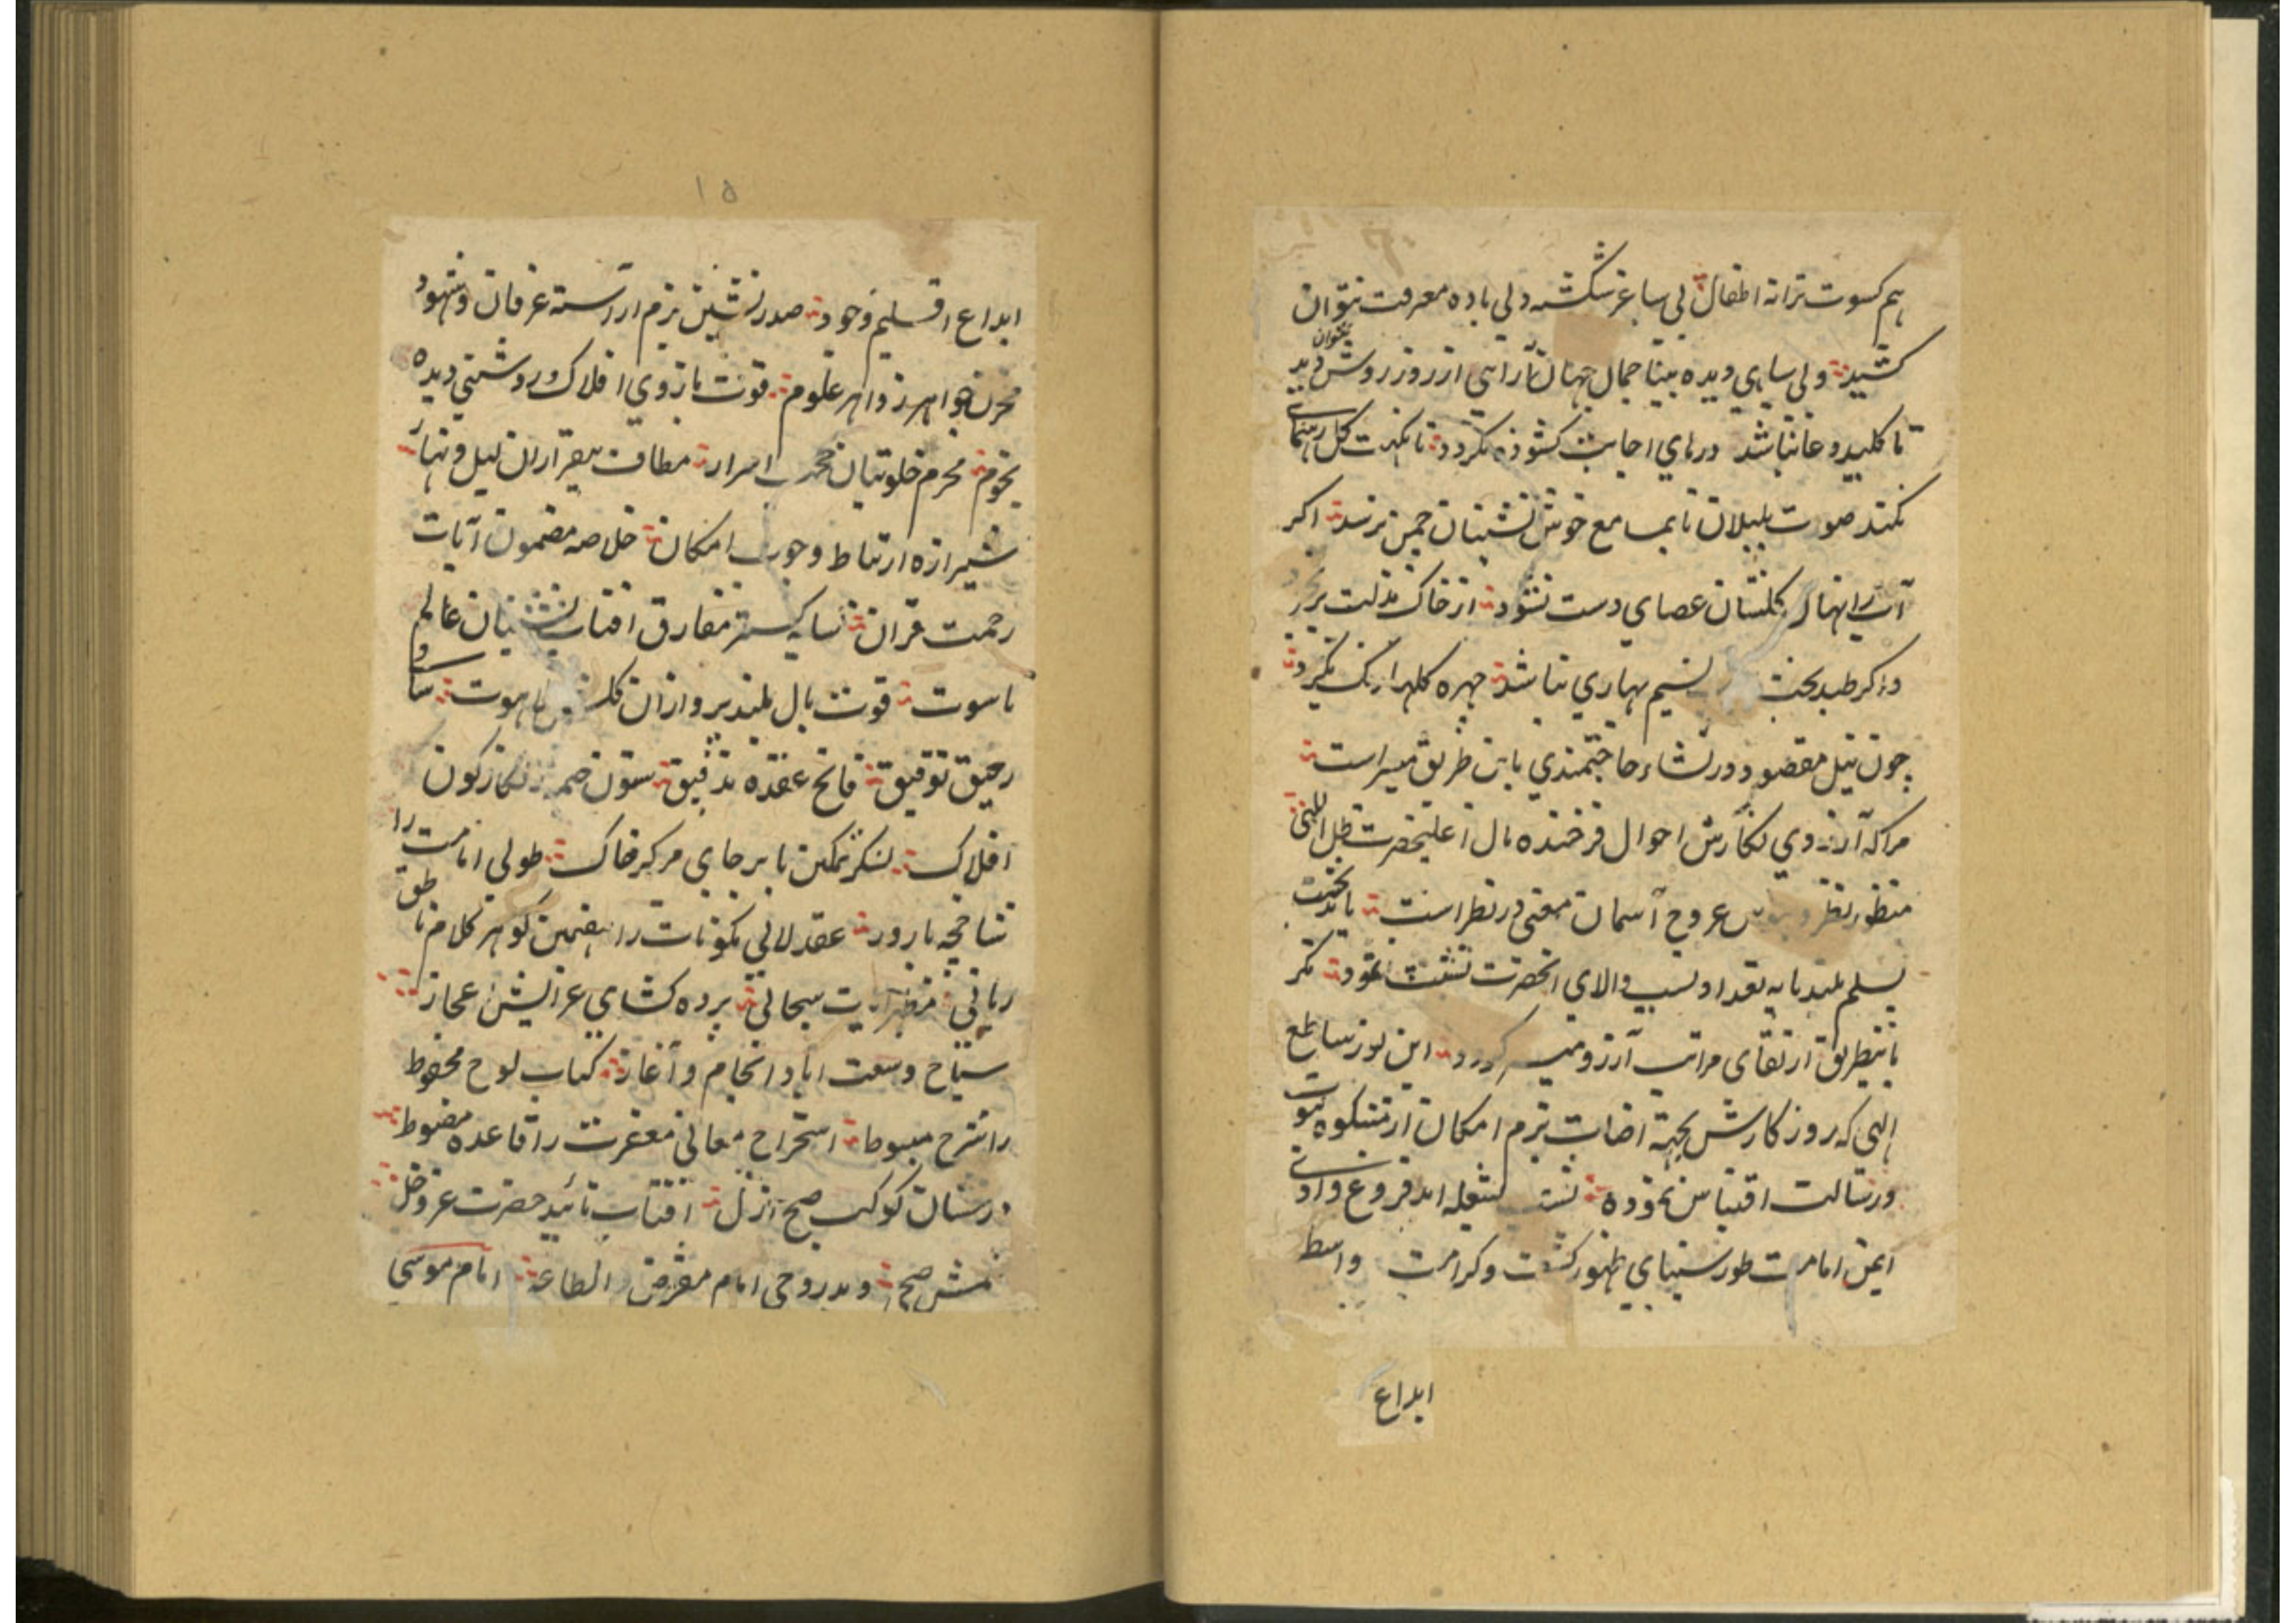 هم کسوت ترانه اطفال بی ساغر شکسته دلی باده معرفت نتوان
کشید ولی سیاهی دیده بینا جمال جهان آرایی از روز روشن نتوان دید
تا کلید دعا نباشد درهای اجابت کشوده نکردد تا نکهت کل رهنمائی
نکند صوت بلبلان تا بمسامع خوش نشینان چمن نرسد اکر
آب را نهال کلستان عصای دست نشود از خاک مذلت بر نخیزد
و اکر طبد بخت نسیم بهاری نباشد چهره کلها رنک نکیرد
چون نیل مقصود در نشاء حاجتمندی باین طریق میسر است
مرا که آرزوی نکارش احوال فرخنده مال اعلیحضرت ظل اللهی
منظور نظر و عروج آسمان معنی در نظر است باید نخست
بسلم بلند پایه تعداد نسب والای انحضرت تشبث نمود مکر
باینطریق ارتقای مراتب آرزو میسر کردد این نور ساطع
الهی که روز کارش بجهة اضاءت بزم امکان از مشکوه نبوت
و رسالت اقتباس نموده شعله اند فروغ وادی
ایمن امامت طور سینای ظهور کشف و کرامت واسط
ابداع
۱۵
ابداع اقلیم وجود صدر نشین بزم آراسته عرفان و شهود
مخزن جواهر زواهر علوم قوت بازوی افلاک و روشنی دیده
نجوم محرم خلوتیان اسرار مطاف بیقراران لیل و نهار
شیرازه ارتباط وجوب امکان خلاصه مضمون آیات
رحمت قران سایه کستر مفارق افتاب نشینان عالم
ناسوت قوت بال بلند پروازان کلشن لاهوت ساقی
رحیق توفیق فاتح عقده تدقیق ستون خیمه زنکارکون
افلاک لنکر تمکین پا بر جای مرکز خاک طوبی امامت را
شاخچه بارور عقد لالی مکونات را بهین کوهر کلام ناطق
ربانی مظهر ایت سبحانی پرده کشای عرایش عجاز
سیاح وسعت اباد انجام و آغاز کتاب لوح محفوظ
را شرح مبسوط استخراج معانی مغفرت را قاعده مضبوط
درخشان کوکب صبح ازل افتاب تائید حضرت عز وجل
امام مفترض الطاعة امام موسی